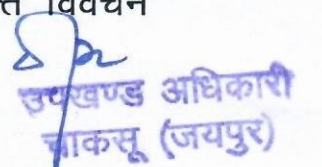 विवेचन
उपखण्ड अधिकारी
चाकसू (जयपुर)